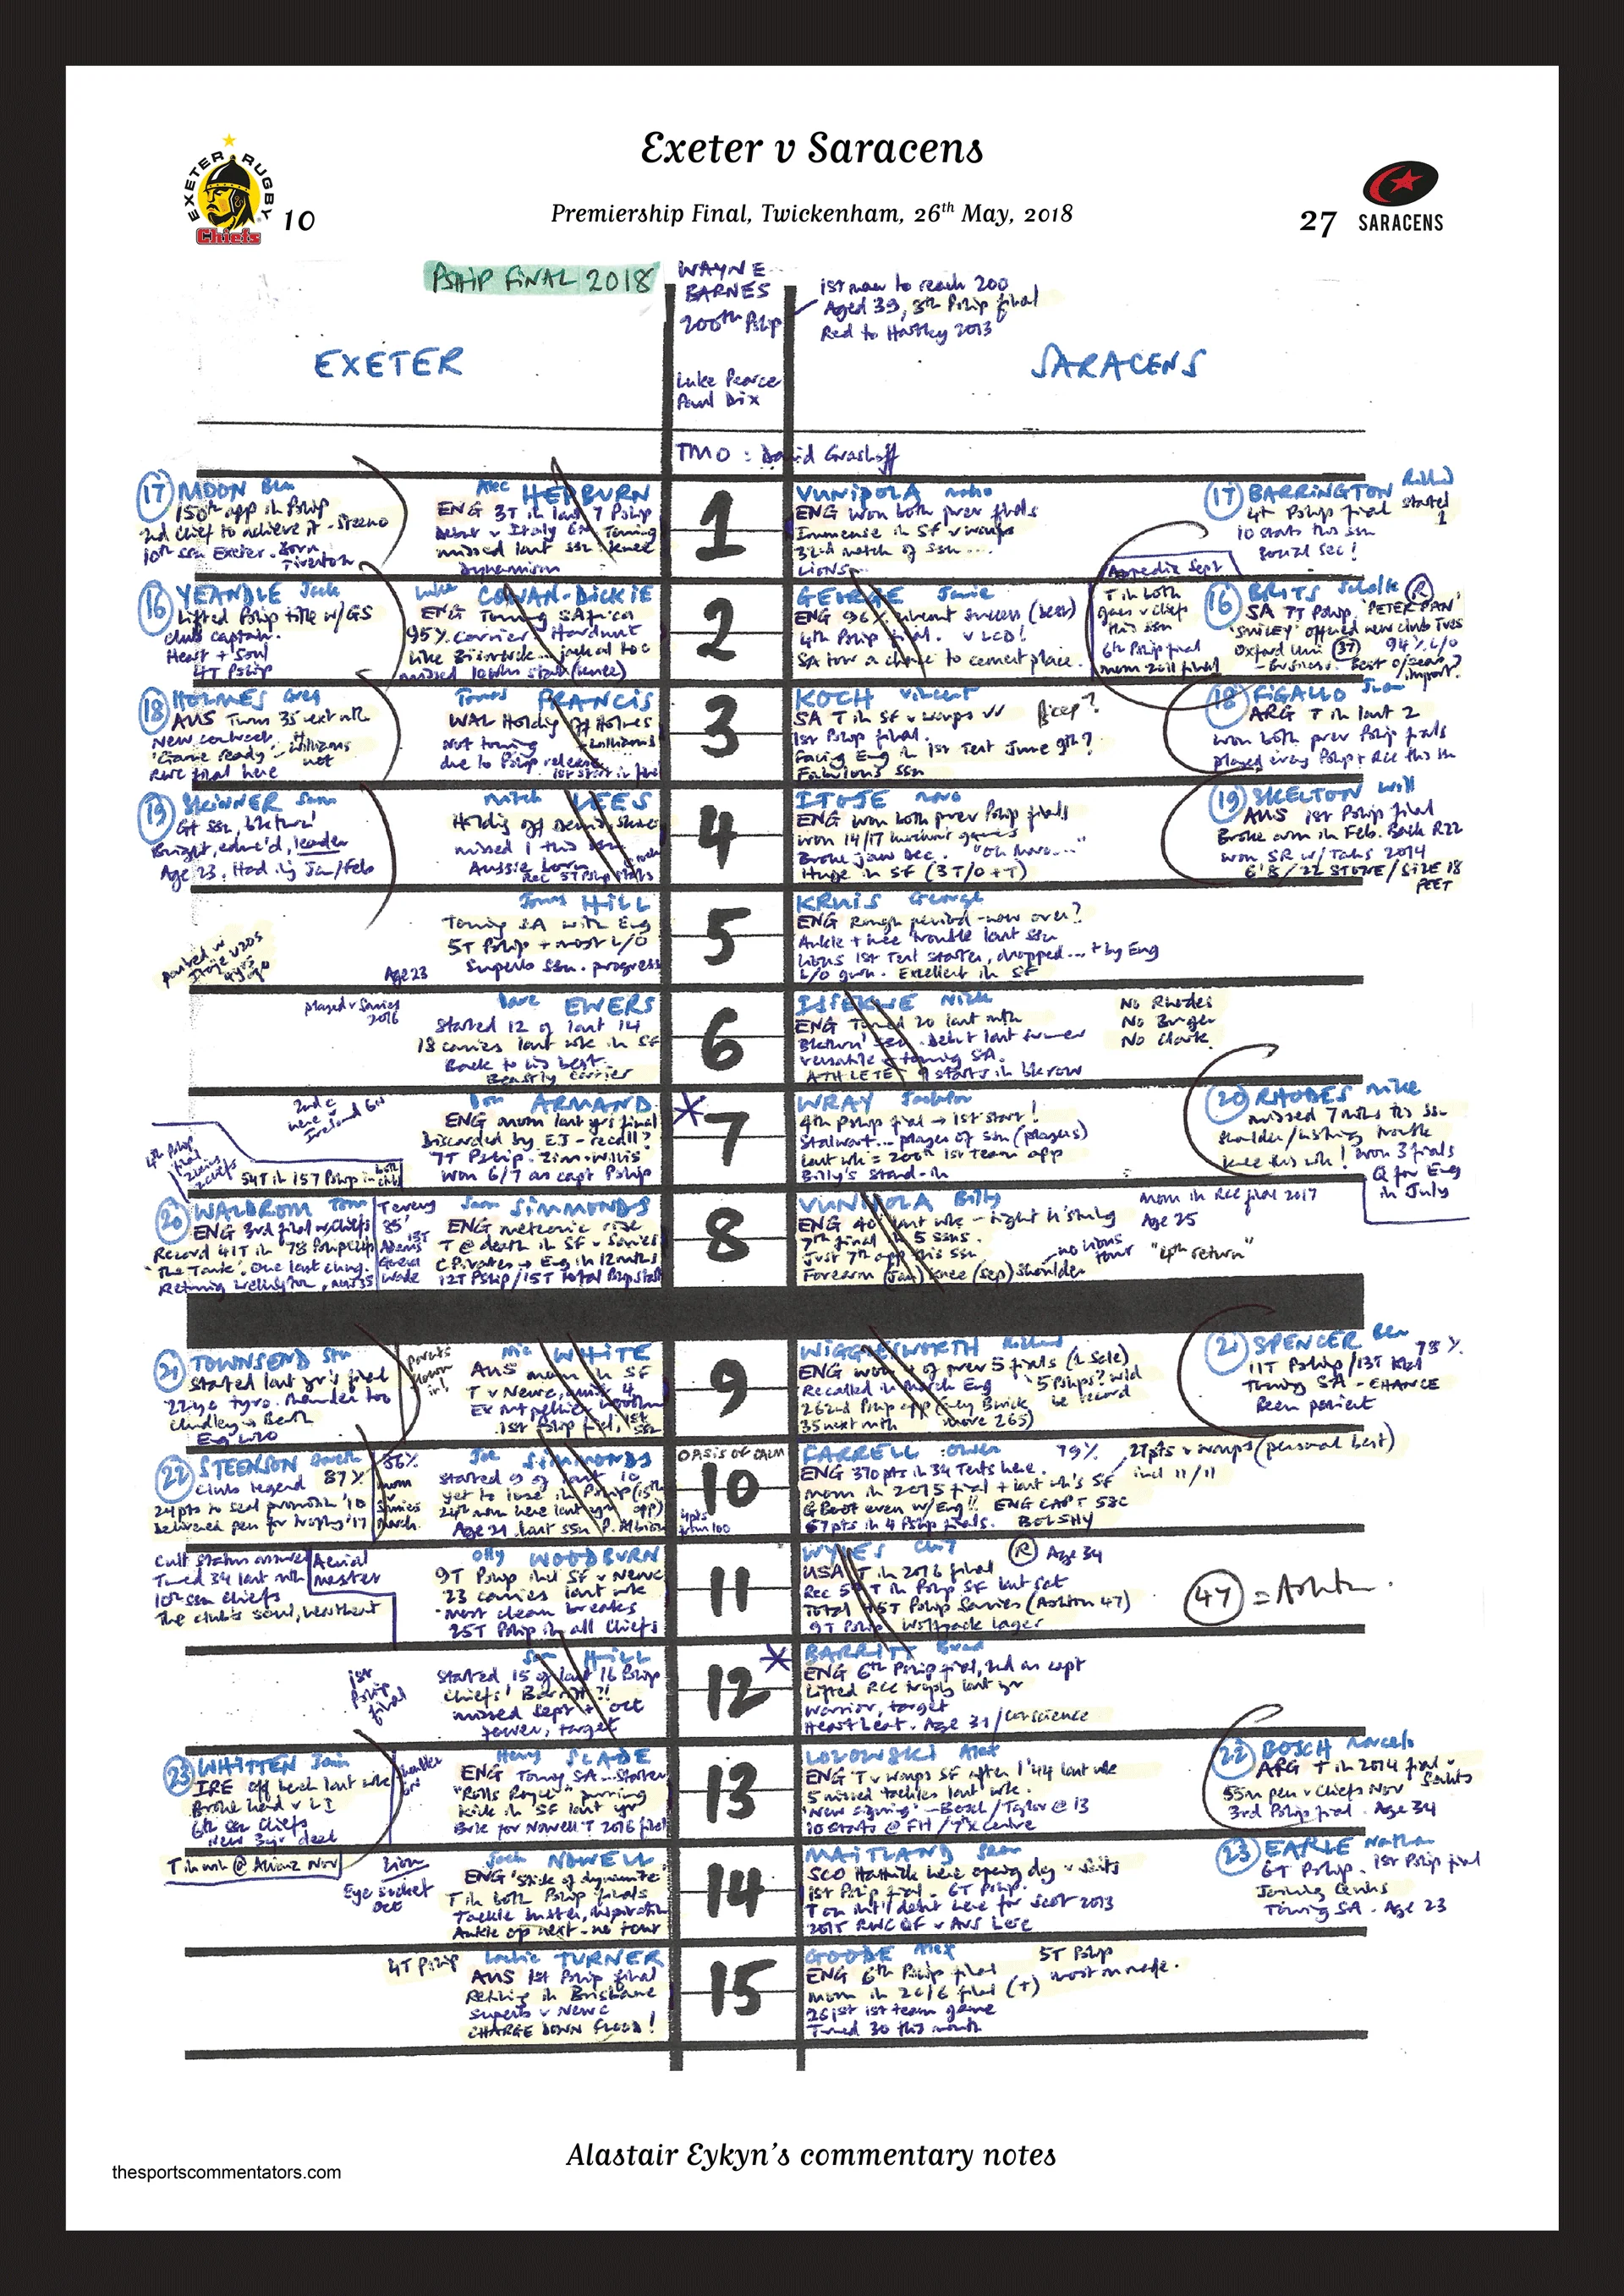 Exeter v Saracens
EXETER RUGBY
Chiefs
10
Premiership Final, Twickenham, 26th May, 2018
27
SARACENS
PSHIP FINAL 2018
WAYNE
BARNES
200th Pship
1st man to reach 200
Aged 39, 8th Pship final
Red to Hartley 2013
EXETER
Luke Pearce
Paul Dix
SARACENS
TMO : David Grashoff
17 MOON Ben
150th app in Pship
2nd Chief to achieve it - Steeno
10th ssn Exeter. Born
Tiverton
Alec HEPBURN
ENG 3T in last 7 Pship
Debut v Italy 6N Touring
missed last ssn knee
Dynamism
1
VUNIPOLA Mako
ENG won both prev finals
Immense in SF v Wasps
32nd match of ssn....
LIONS
17 BARRINGTON Richard
4th Pship final started 1
10 starts this ssn
16 YEANDLE Jack
Lifted Pship title w/GS
Club captain.
Heart + Soul
4T Pship
Luke COWAN-DICKIE
ENG Touring SAfrica
95% carrier Hardnut
Like Bismarck... jackal too
missed 10 wks start (knee)
2
GEORGE Jamie
ENG 96% lineout success (best)
4th Pship final. v LCD!
SA tour a chance to cement place.
Appendix Sept
T in both
games v Chiefs
this ssn
6th Pship final
mom 2011 final
16 BRITS Schalk R
SA 7T Pship. 'PETER PAN'
'SMILEY' offered new club Tues
Oxford Uni (37) 94% L/O
- Business. Best o/seas import?
18 HOLMES Greg
AUS Turns 35 next mth
New contract
'Game ready' - Williams
not
RWC final here
Tomas FRANCIS
WAL Holding off Holmes
+ Williams
Not touring
due to Pship release
1st start in final
3
KOCH Vincent
SA T in SF v Wasps
1st Pship final.
Facing Eng in 1st Test June 9th?
Fabulous ssn
Bicep?
18 FIGALLO Juan
ARG T in last 2
won both prev Pship finals
played every Pship + RCC this ssn
19 SKINNER Sam
Gt ssn, b'kthru'
Bright, educ'd, leader
Age 23. Had inj Jan/Feb
Mitch LEES
missed 1 this ssn
Aussie born
4
ITOJE Maro
ENG won both prev Pship finals
won 14/17 knockout games
Broke jaw Dec. "Oh Maro...."
Huge in SF (3 T/O + T)
19 SKELTON Will
AUS 1st Pship final
Broke arm in Feb. Back R22
won SR w/Tahs 2014
6'8 / 22 STONE / SIZE 18
FEET
Jonny HILL
Touring SA with Eng
5T Pship + most L/O
Superb ssn. progress
Age 23
5
KRUIS George
ENG Rough period - now over?
Ankle + knee trouble last ssn
Lions 1st Test starter, dropped... + by Eng
L/O guru. Excellent in SF
played v Saries
2016
Dave EWERS
Started 12 of last 14
18 carries last wk in SF
Back to his best.
Beastly carrier
6
ISIEKWE Nick
ENG Turned 20 last mth
Bkthru' ssn. Debut last summer
versatile + touring SA.
ATHLETE 9 starts in bk row
No Rhodes
No Burger
No Clark
Don ARMAND
ENG mom last yrs final
Discarded by EJ - recall?
7T Pship. Zim - Willis
won 6/7 as capt Pship
7
WRAY Jackson
4th Pship final → 1st start!
Stalwart... player of ssn (players)
Last wk = 200th 1st team app
Billy's stand-in
20 RHODES Mike
missed 7 mths this ssn
knee this wk! won 3 finals
Q for Eng
in July
54T in 157 Pship
20 WALDROM Tom
ENG 3rd final w/Chiefs
Record 41T in 78 Pship Chfs
'The Tank'. One last chug.
Retiring Wellington
Sam SIMMONDS
ENG meteoric rise
T @ death in SF v Saries
C Pirates → Eng in 12 mths
12T Pship / 15T Total
8
VUNIPOLA Billy
ENG 40' last wk - tight h'string
7th final in 5 ssns.
Just 7th app this ssn
Forearm (Jan) knee (sep) shoulder
no Lions
tour
mom in RCC final 2017
Age 25
"4th return"
21 TOWNSEND Stu
Started last yr's final
22yo tyro. Thunder too
Chudley → Bath
Eng U20
Nic WHITE
AUS mom in SF
T v Newc
Ex Montpellier
1st Pship final, 1st ssn
9
WIGGLESWORTH Richard
ENG won 4 of prev 5 finals (1 Sale)
Recalled in March Eng
262nd Pship app (only Borwick
35 next mth more 265)
5 Pships? wld
be record
21 SPENCER Ben 73%
11T Pship / 13T total
Touring SA - CHANCE
Been patient
22 STEENSON Gareth
Club legend 87%
24pts to seal promotn '10
Delivered pen for trophy '17
86%
mom
v
Saries
March.
Joe SIMMONDS
started 9 of last 10
yet to lose in Pship (15th app)
Age 21 last ssn P. Albion
OASIS OF CALM
10
4pts
from 100
FARRELL Owen 79%
ENG 370 pts in 34 Tests here.
mom in 2015 final + last wk's SF
G Boot even w/Eng!! ENG CAPT
67pts in 4 Pship finals. BOLSHY
27pts v Wasps (personal best)
incl 11/11
Cult status assured
Turned 34 last mth
10th ssn Chiefs
The club's soul, heartbeat
Aerial
master
Olly WOODBURN
9T Pship incl SF v Newc
23 carries last wk
most clean breaks
25T Pship in all Chiefs
11
WYLES Chris R Age 34
USA T in 2016 final
Rec 5th T in Pship SF last Sat
Total 45T Pship Saries (Ashton 47)
9T Pship. Wolfpack Lager
47 = Ashton.
1st
Pship
final
Sam HILL
Started 15 of last 16 Pship
Chiefs' Barritt?!
missed Sept + Oct
Power, target
12
BARRITT Brad
ENG 6th Pship final, 2nd as capt
Lifted RCC trophy last yr
Warrior, target
Heartbeat. Age 31 / conscience
23 WHITTEN Ian
IRE off bench last wk
Broke hand v LI
6th ssn Chiefs
New 3yr deal
Henry SLADE
ENG Touring SA... Starter
"Rolls Royce" purring
kick in SF last yr
13
LOZOWSKI Alex
ENG T v Wasps SF after 1'44 last wk
5 missed tackles last wk.
'New signing' - Bosch / Taylor @ 13
10 starts @ FH / 7 x centre
22 BOSCH Marcelo
ARG T in 2014 final v Saints
55m pen v Chiefs Nov
3rd Pship final. Age 34
T in win @ Allianz Nov
Lion
Eye socket
Oct
Jack NOWELL
ENG 'Stick of dynamite'
T in both Pship finals
Tackle buster, inspiration
Ankle op next - no tour
14
MAITLAND Sean
SCO Hattrick here opening day v Irish
1st Pship final - 6T Pship.
T on int'l debut here for Scot 2013
2015 RWC QF v AUS here
23 EARLE Nathan
6T Pship. 1st Pship final
Joining Quins
Touring SA - Age 23
4T Pship
Lachie TURNER
AUS 1st Pship final
Retiring in Brisbane
superb v Newc
CHARGE DOWN FLOOD!
15
GOODE Alex
ENG 6th Pship final
mom in 2016 final (T)
261st 1st team game
Turned 30 this month
5T Pship
most m made.
Alastair Eykyn's commentary notes
thesportscommentators.com